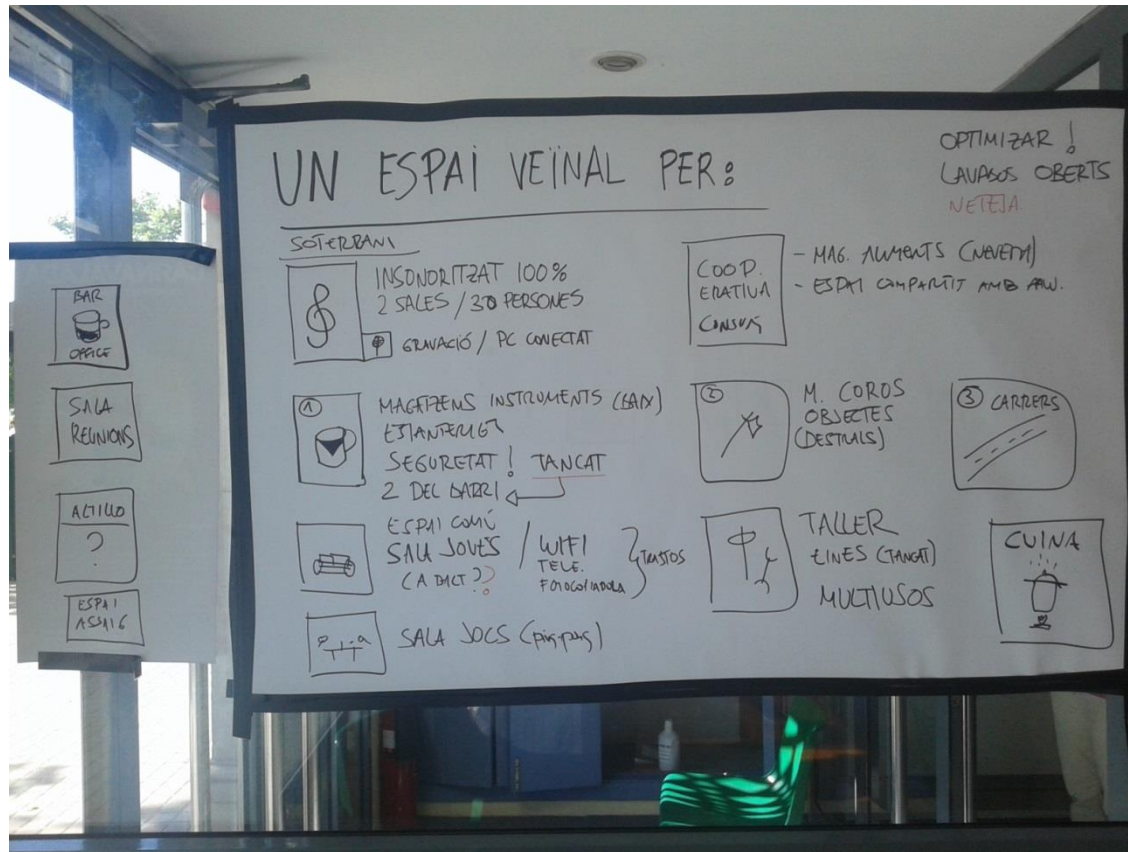 BAR
OFFICE
SALA
REUNIONS
ALTILLO
?
ESPAI
ASSAIG
UN ESPAI VEÏNAL PER:
OPTIMIZAR !
LAVABOS OBERTS
NETEJA
SOTERRANI
INSONORITZAT 100%
2 SALES / 30 PERSONES
GRAVACIÓ / PC CONECTAT
COOP.
ERATIVA
CONSUM
- MAG. ALIMENTS (NEVERA)
- ESPAI COMPARTIT AMB
1
MAGATZEMS INSTRUMENTS (BAIX)
SEGURETAT ! TANCAT
2 DEL BARRI
2
M. COROS
OBJECTES
3 CARRERS
ESPAI COMÚ
SALA JOVES
(A DALT ??
/ WIFI
TELE.
FOTOCOPIADORA
} TRASTOS
TALLER
EINES (TANCAT)
MULTIUSOS
CUINA
SALA JOCS (ping-pong)